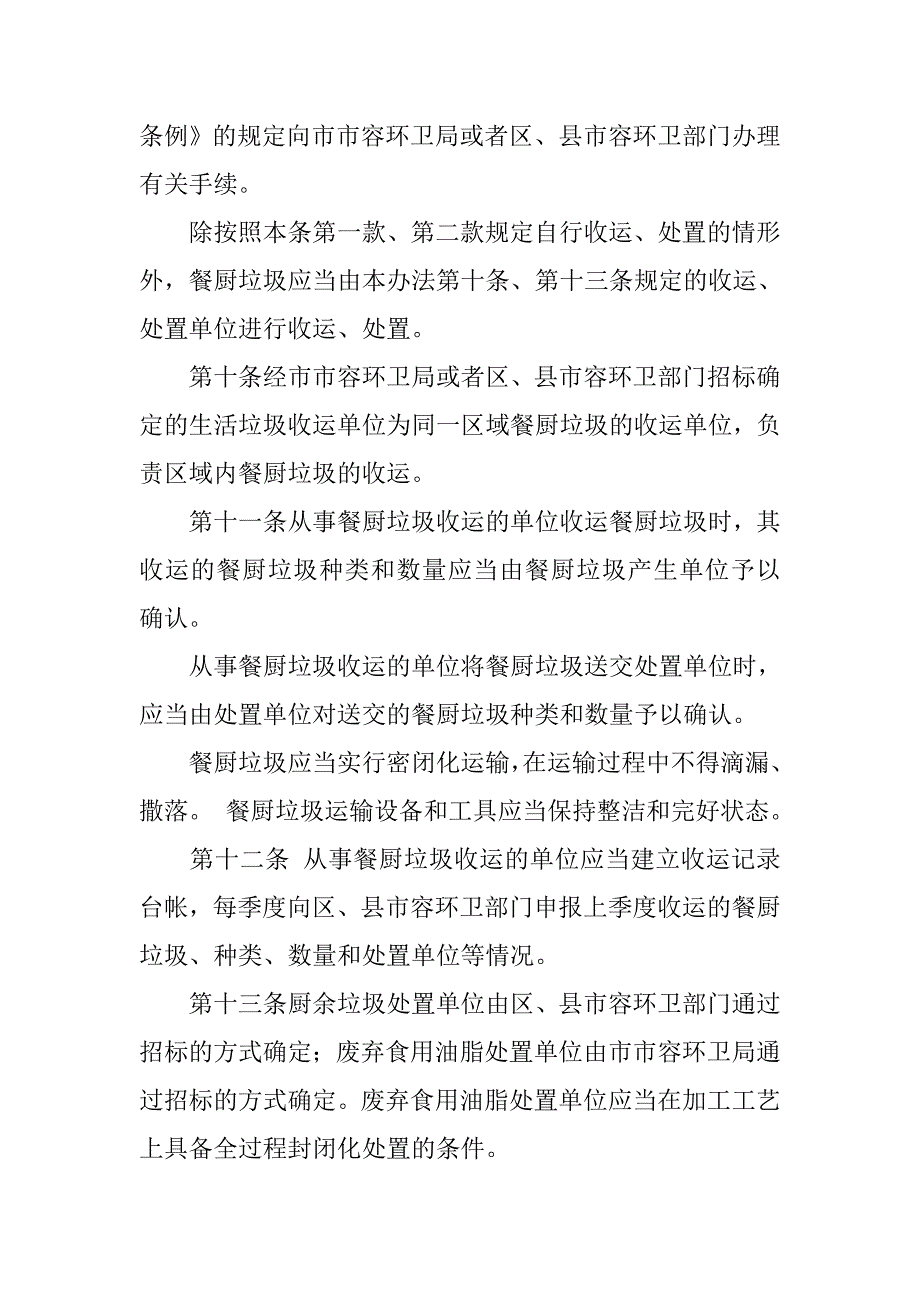 条例》的规定向市市容环卫局或者区、县市容环卫部门办理
有关手续。
除按照本条第一款、第二款规定自行收运、处置的情形
外，餐厨垃圾应当由本办法第十条、第十三条规定的收运、
处置单位进行收运、处置。
第十条经市市容环卫局或者区、县市容环卫部门招标确
定的生活垃圾收运单位为同一区域餐厨垃圾的收运单位，负
责区域内餐厨垃圾的收运。
第十一条从事餐厨垃圾收运的单位收运餐厨垃圾时，其
收运的餐厨垃圾种类和数量应当由餐厨垃圾产生单位予以
确认。
从事餐厨垃圾收运的单位将餐厨垃圾送交处置单位时，
应当由处置单位对送交的餐厨垃圾种类和数量予以确认。
餐厨垃圾应当实行密闭化运输，在运输过程中不得滴漏、
撒落。 餐厨垃圾运输设备和工具应当保持整洁和完好状态。
第十二条 从事餐厨垃圾收运的单位应当建立收运记录
台帐，每季度向区、县市容环卫部门申报上季度收运的餐厨
垃圾、种类、数量和处置单位等情况。
第十三条厨余垃圾处置单位由区、县市容环卫部门通过
招标的方式确定；废弃食用油脂处置单位由市市容环卫局通
过招标的方式确定。废弃食用油脂处置单位应当在加工工艺
上具备全过程封闭化处置的条件。